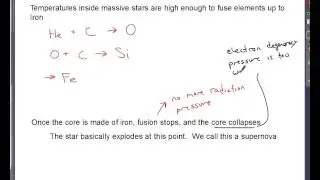 Temperatures inside massive stars are high enough to fuse elements up to
Iron
He + C → O
O + C → Si
→ Fe
electron degeneracy
pressure is too
no more radiation
pressure
Once the core is made of iron, fusion stops, and the core collapses
The star basically explodes at this point. We call this a supernova